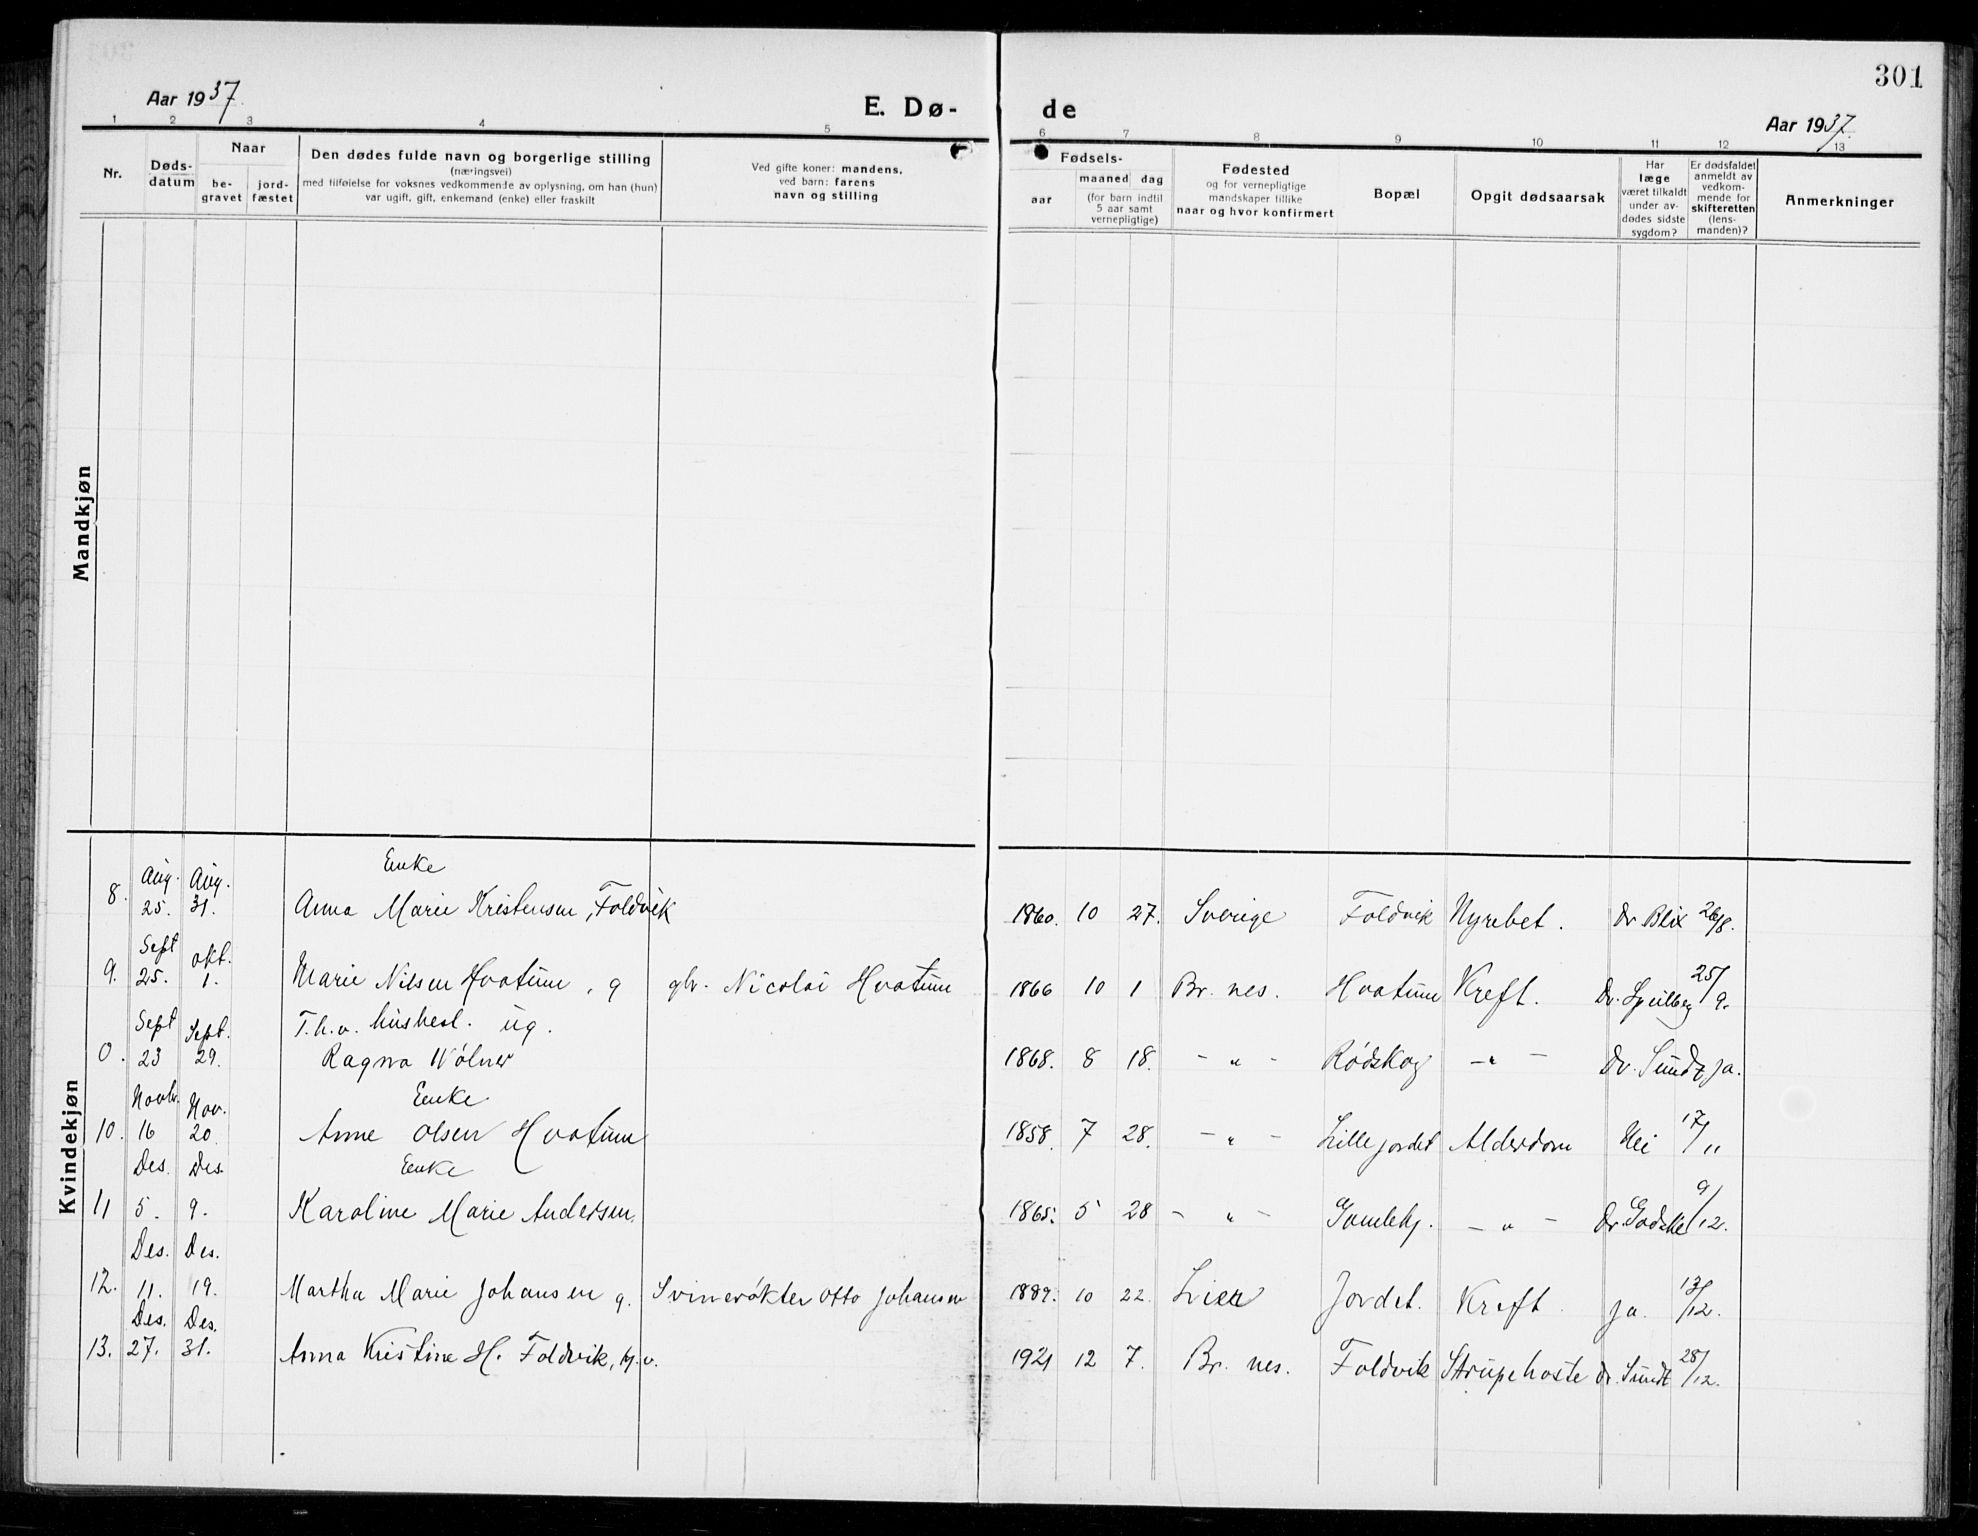 301
Aar 1937.
E. Dø-
de
Aar 1937.
1 2 3 4 5 6 7 8 9 10 11 12 13
Nr.
Døds-
datum
Naar
be-
gravet
jord-
fæstet
Den dødes fulde navn og borgerlige stilling
(næringsvei)
med tilføielse for voksnes vedkommende av oplysning, om han (hun)
var ugift, gift, enkemand (enke) eller fraskilt
Ved gifte koner: mandens,
ved barn: farens
navn og stilling
Fødsels-
aar
maaned dag
(for barn indtil
5 aar samt
vernepligtige)
Fødested
og for vernepligtige
mandskaper tillike
naar og hvor konfirmert
Bopæl
Opgit dødsaarsak
Har
læge
været tilkaldt
under av-
dødes sidste
sygdom?
Er dødsfaldet
anmeldt av
vedkom-
mende for
skifteretten
(lens-
manden)?
Anmerkninger
Mandkjøn
Kvindekjøn
Aug. Aug. Enke
8. 25. 31. Anna Marie Kristensen, Foldvik 1860. 10 27. Sverige Foldvik Nyrebet. Dr Blix 26/8.
Sept okt.
9. 25. 1. Marie Nilsen Hvatum, g gbr. Nicolai Hvatum 1866 10 1 Br. nes. Hvatum Kreft. Dr. 25/9.
Sept Sept. T.h.v. husbest. ug.
0. 23 29. Ragna Wølner 1868. 8 18. - " - Rødskog - " - Dr. Sundt ja.
Novbr. Nov. Enke
10. 16 20. Anne Olsen Hvatum 1858. 7 28. - " - Lillejordet Alderdom Nei 17/11
Des. Des. Enke
11 5. 9. Karoline Marie Andersen. 1865. 5 28 - " - Gamlehj. - " - Dr. Godske 9/12.
Des. Des.
12. 11. 19. Martha Marie Johansen g. Svinerøkter Otto Johansen 1889. 10 22. Lier Jordet. Kreft. ja. 13/12.
Des. Des.
13. 27. 31. Anna Kristine H. Foldvik, hj.v. 1921 12 7. Br. nes. Foldvik Strupehoste dr. Sundt 28/12.